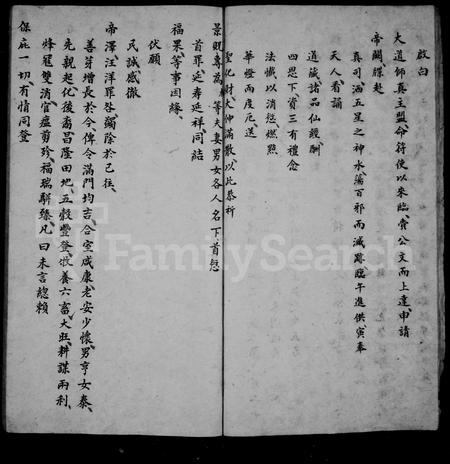 啟白
大道師真主盟、命符使以來臨、賫公文而上達、申請
帝闕、牒赴
真司、洒五星之神水、蕩百邪而滅跡、臨午進供、寅奉
天人、看誦
道藏諸品仙經、酬
四恩、下資三有、禮念
法懺以消愆、燃點
華燈而度厄、送
聖化財、大伸滿散、以此恭祈
景貺、專為 等夫妻男女各人名下首愆
首罪、延壽延祥、同結
福果等事因緣、
伏願
民誠感徹
帝澤汪洋、罪咎蠲除於已往、
善芽增長於今、俾令滿門均吉、合室咸康、老安少懷、男亨女泰、
先親起化、後裔昌隆、田地、五穀豐登、牧養六畜大旺、耕謀兩利、
烽冠雙消、官瘟剪珍、福瑞駢臻、凡曰未言、總賴
保庇一切、有情同登
FamilySearch